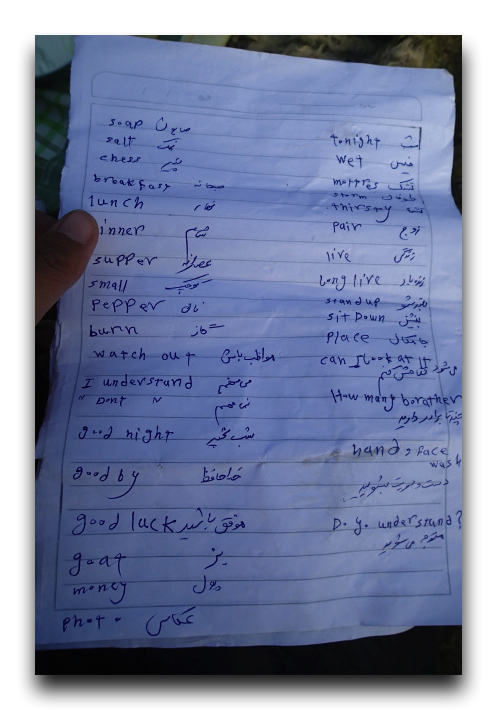 soap صابون
salt نمک
chess پنیر
breakfast صبحانه
lunch نهار
inner شام
supper عصرانه
small کوچک
pepper
burn گاز
watch out مواظب باش
I understand می فهمم
" Dont " نمی فهمم
good night شب بخیر
good by خداحافظ
good luck موفق باشید
goat بز
money پول
phot• عکاسی
tonight
wet خیس
mattres تشک
storm طوفان
thirsty تشنه
pair زوج
live زندگی
long live زنده باد
stand up بلند شو
sit Down بنشین
place
can I look at it
می شود نگاهش کنم
How many borather
چند تا برادر دارید
hand, Face
wash
دست و صورت بشویید
D. y. understand?
متوجه می شوید